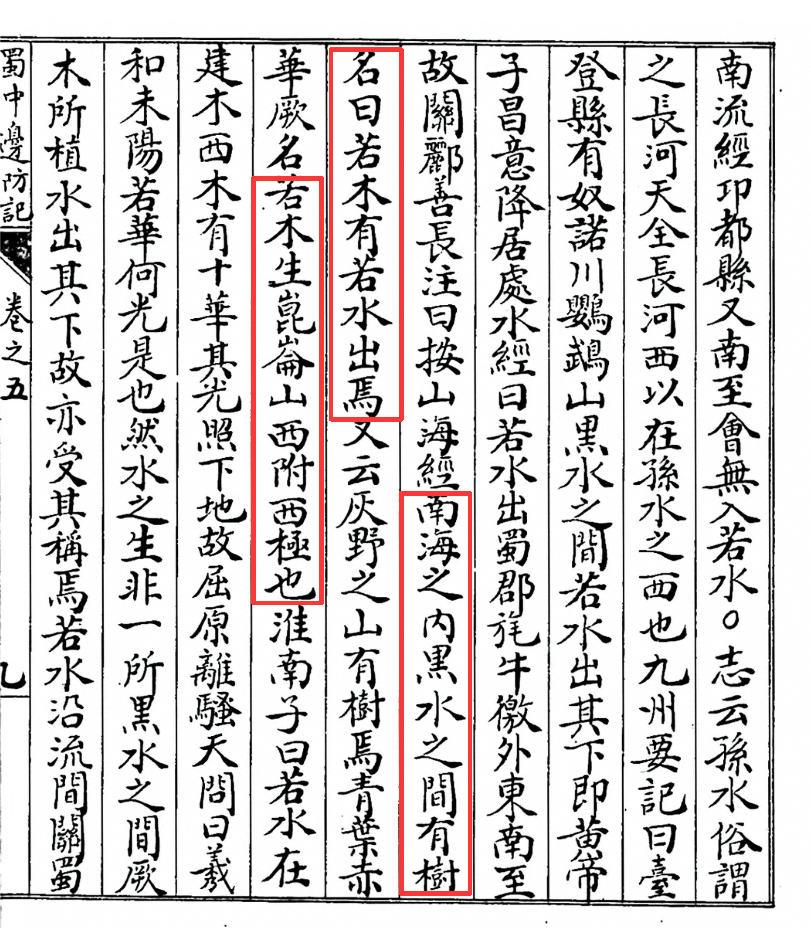 南流經邛都縣又南至會無入若水○志云孫水俗謂
之長河天全長河西以在孫水之西也九州要記曰臺
登縣有奴諾川鸚鵡山黒水之間若水出其下即黄帝
子昌意降居處水經曰若水出蜀郡旄牛徼外東南至
故關酈善長注曰按山海經南海之内黒水之間有樹
名曰若木有若水出焉又云灰野之山有樹焉青葉赤
華厥名若木生崑崙山西附西極也淮南子曰若水在
建木西木有十華其光照下地故屈原離騷天問曰羲
和未陽若華何光是也然水之生非一所黒水之間厥
木所植水出其下故亦受其稱焉若水沿流間關蜀
蜀中邊防記
卷之五